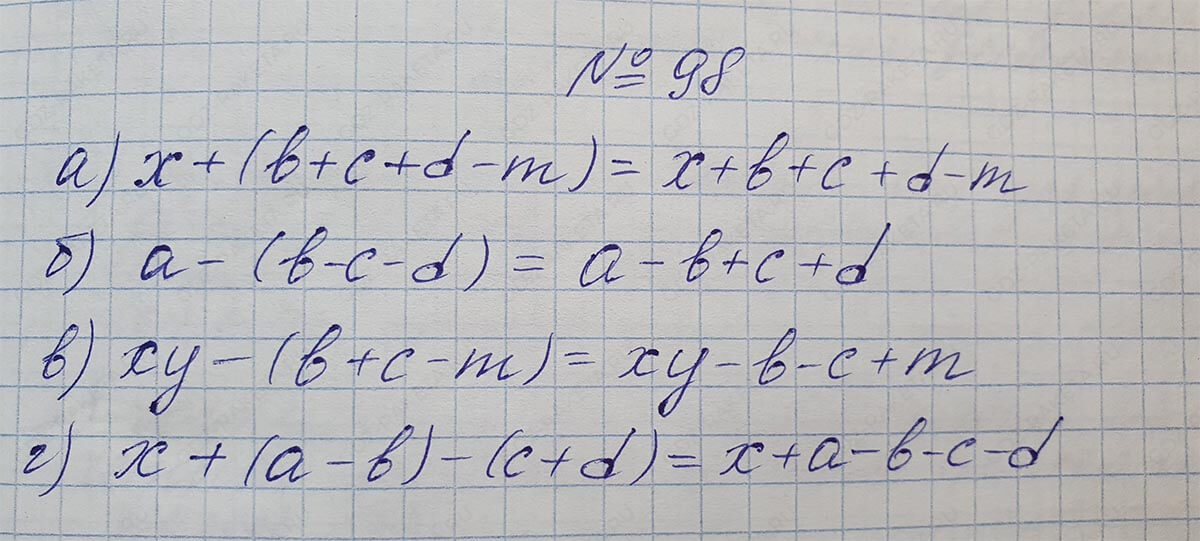 № 98
а) x + (b + c + d - m) = x + b + c + d - m
б) a - (b - c - d) = a - b + c + d
в) xy - (b + c - m) = xy - b - c + m
г) x + (a - b) - (c + d) = x + a - b - c - d